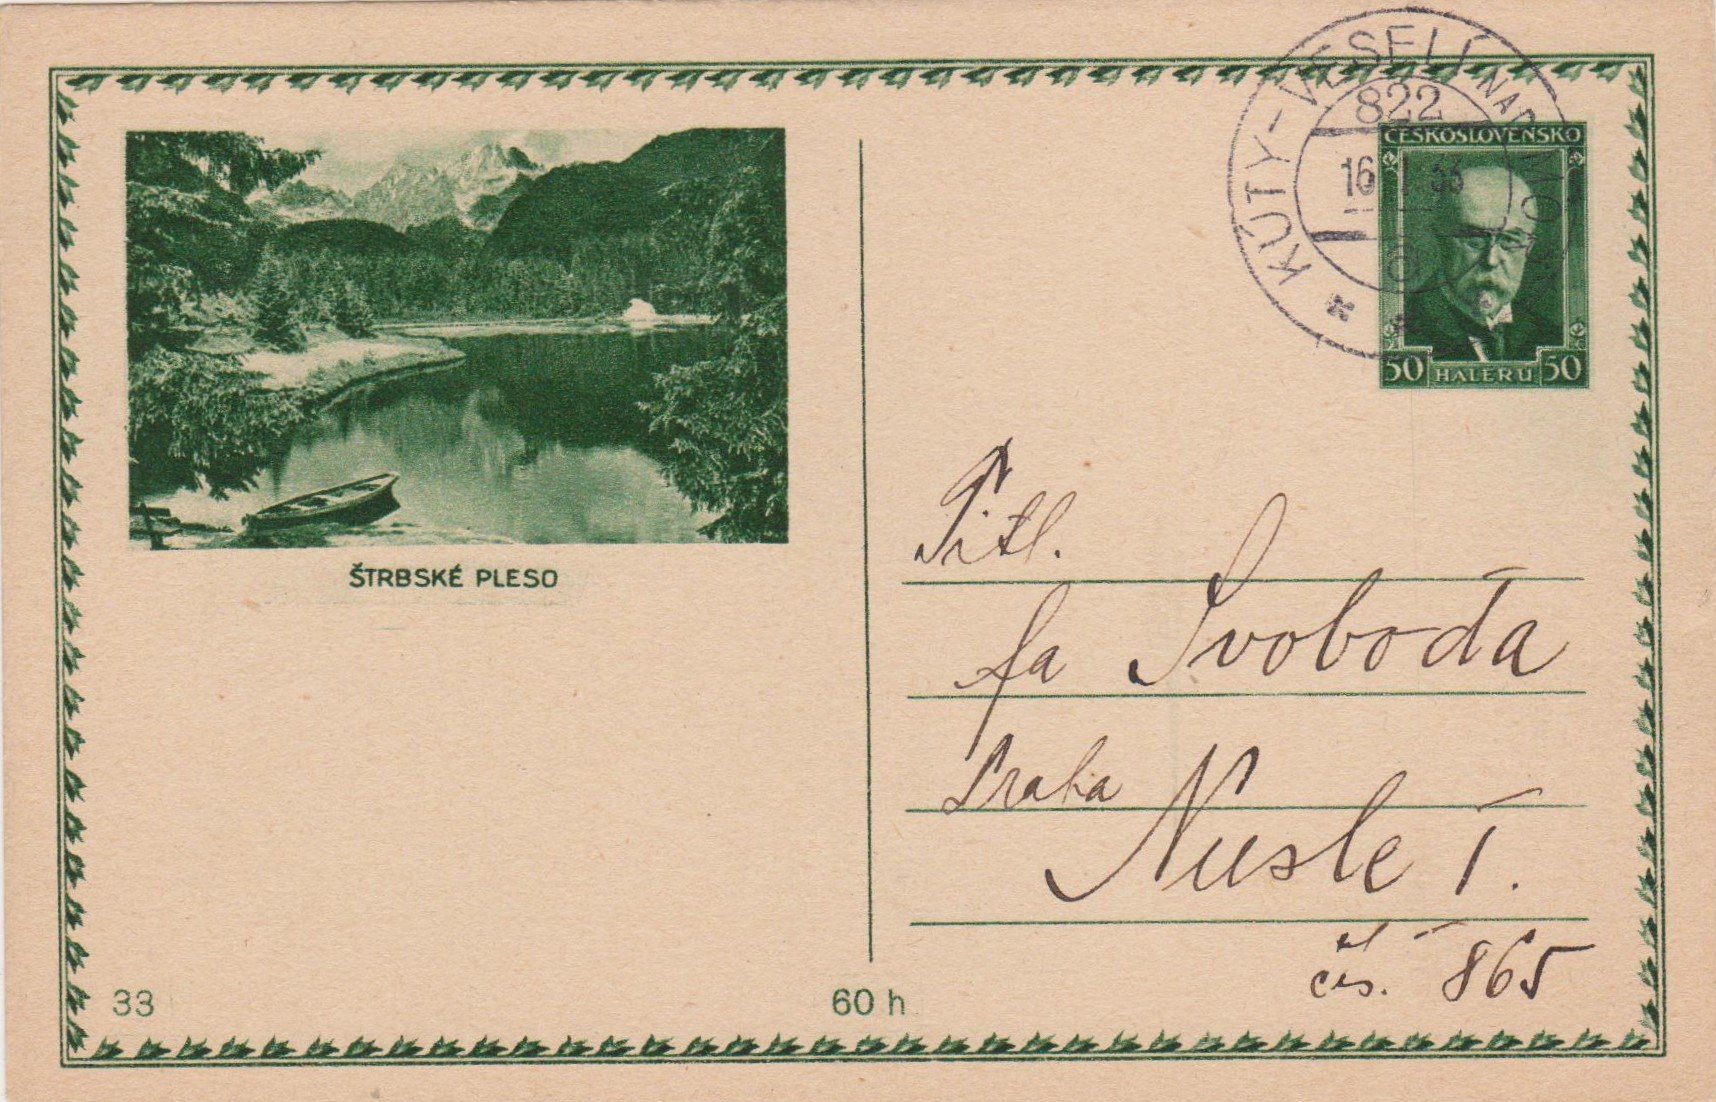 KÚTY-VESELÍ NAD MOR
822
ČESKOSLOVENSKO
16
50 HALERU 50
ŠTRBSKÉ PLESO
Titl.
fa Svoboda
Praha
Nusle I.
čís. 865
33
60 h